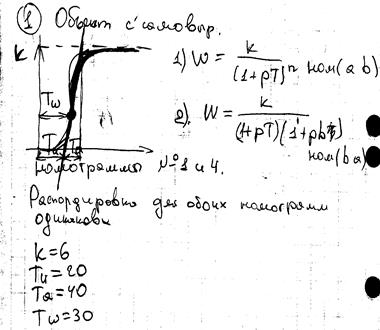 ① Объект с самовыр.
k
1) W = k / (1+pT)^n ном(a b)
Tω
2). W = k / (1+pT)(1+pbT)
ном(b a)
номограммы №1 и 4.
для обоих номограмм
одинаковы
k=6
Tu=20
Ta=40
Tω=30